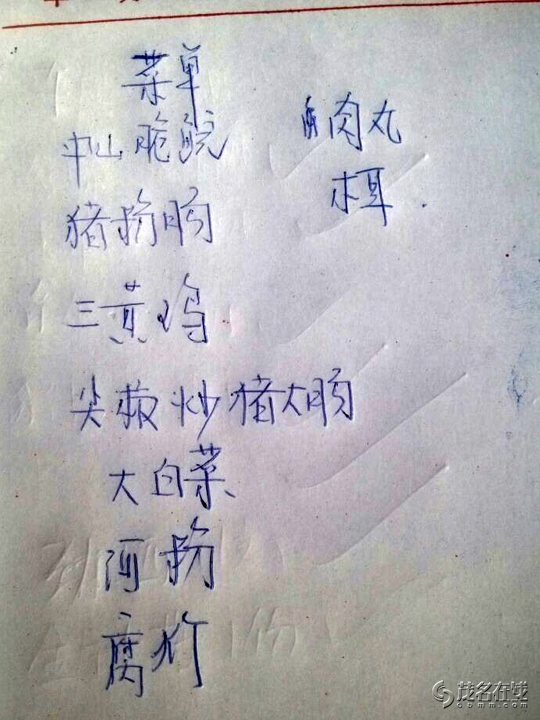 菜单
中山脆鲩
猪扮肠
三黄鸡
尖椒炒猪大肠
大白菜
河扮
腐竹
肉丸
木耳.
茂名在线
cbmm.com